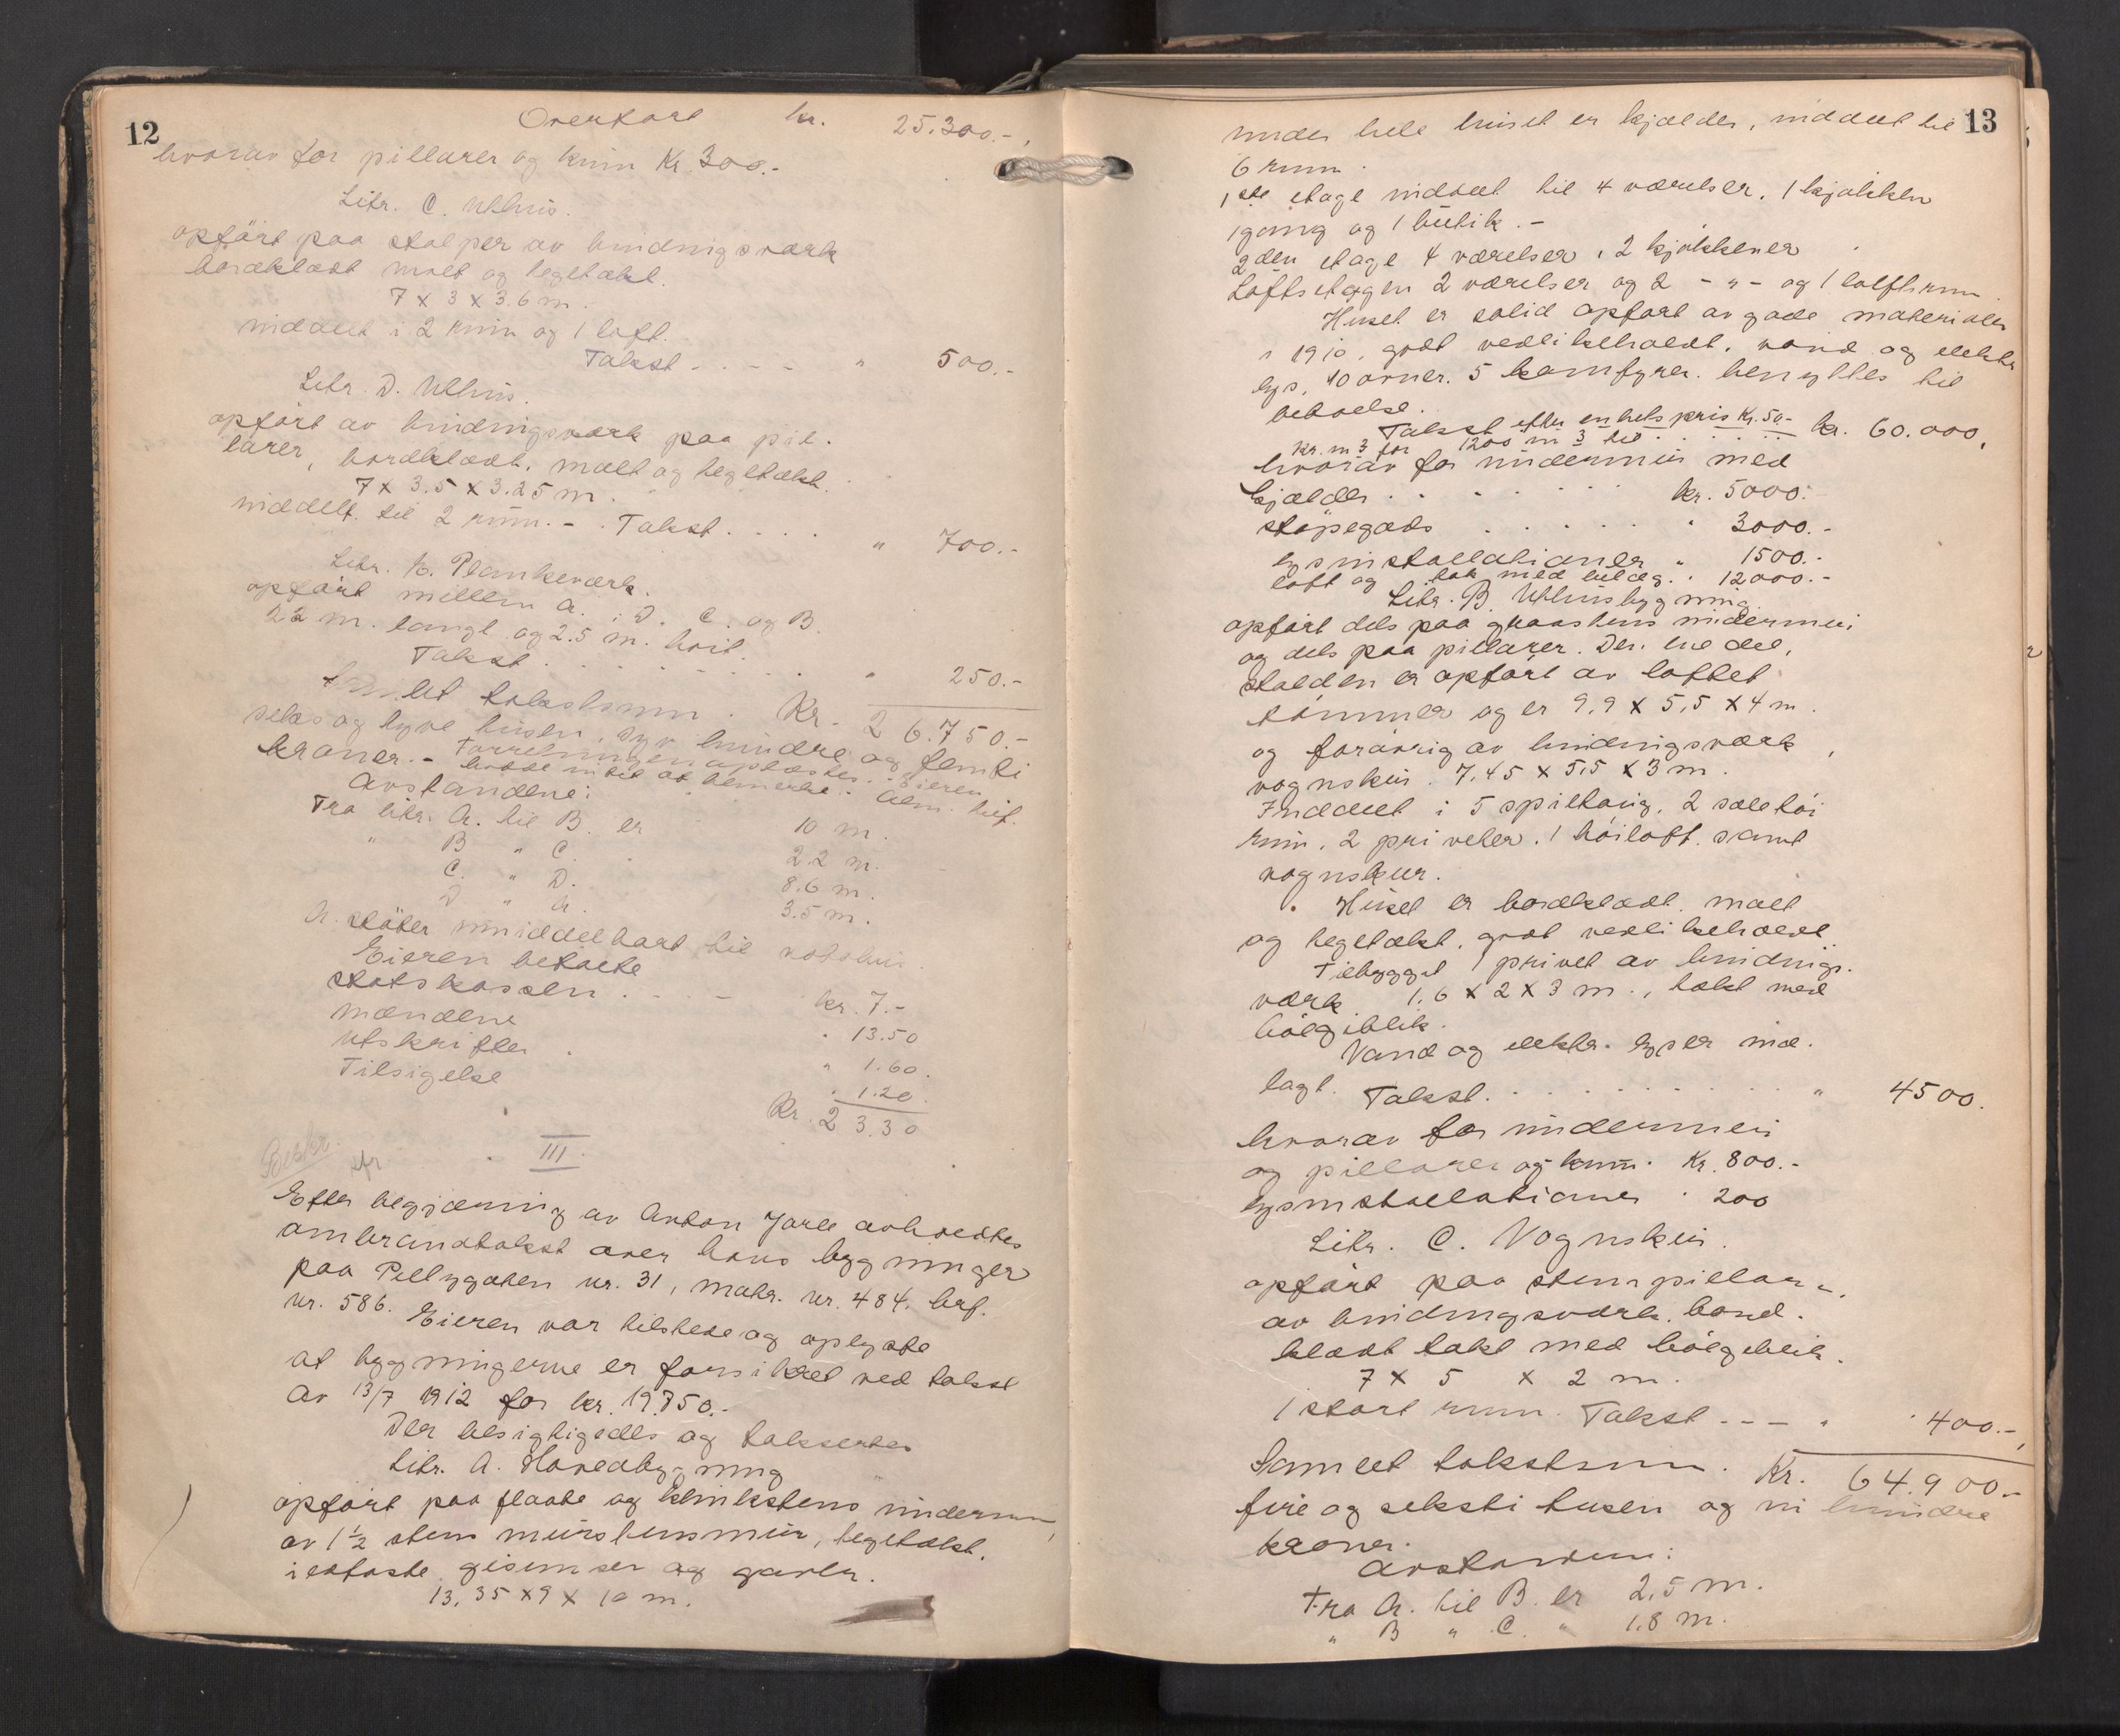 12
Overført kr. 25.300.-
hvorav for pillarer og kum Kr. 300.-
Litr. C. Uthus.
opført paa stolper av bindingsværk
bordklædt malt og tegltækt.
7 x 3 x 3.6 m.
inddelt i 2 rum og 1 loft.
Takst . . . . " 500.-
Litr. D. Uthus.
opført av bindingsværk paa pil-
larer, bordklædt, malt og tegltækt.
7 x 3.5 x 3.25 m.
inddelt til 2 rum. - Takst . . . . " 700.-
Litr. E. Plankeværk.
opført mellem A. : D. C. og B.
22 m. langt og 2.5 m. høit.
Takst . . . . . . " 250.-
Samlet takstsum. Kr. 26.750.-
seks og tyve tusen, syv hundre og femti
kroner. - Forretningen oplæstes. - Eieren
hadde intet at bemerke.
Avstandene:
Fra litr. A. til B. er 10 m.
" B " C. 2.2 m.
C. " D. 8.6 m.
D " A. 3.5 m.
A. støter umiddelbart til
Eieren betalte
statskassen . . . kr. 7.-
mændene " 13.50
utskrifter . " 1.60.
Tilsigelse " 1.20.
Kr. 23.30
Beskr.
III.
Efter begjæring av Anton Jarle avholdtes
ombrandtakst over hans bygninger
paa nr. 31, matr. nr. 484, brf.
nr. 586. Eieren var tilstede og oplyste
at bygningerne er forsikret ved takst
av 13/7 1912 for kr. 19.750.-
Der besigtigedes og taksertes
Litr. A. Hovedbygning
opført paa flaate og klinkstens undermur,
av 1½ stens murstensmur, tegltækt.
gesimser og gavler.
13.35 x 9 x 10 m.
13
under hele huset er kjælder, inddelt til
6 rum.
1ste etage inddelt til 4 værelser, 1 kjøkken
1 gang og 1 butik. -
2den etage 4 værelser, 2 kjøkkener
Loftsetagen 2 værelser og 2 - " - og 1 loftsrum.
Huset er solid opført av gode materialer
i 1910, godt vedlikeholdt, vand og elektr.
lys, 10 ovner, 5 komfyrer. benyttes til
beboelse.
Takst efter enhetspris Kr. 50.- kr. 60.000.
kr. m3 for 1200 m3 til . . . . .
hvorav for undermur med
kjælder . . . . . . kr. 5000.-
støpegods . . . . . " 3000.-
lysinstallationer " 1500.-
loft og tak med bilæg. " 12000.-
Litr. B. Uthusbygning
opført dels paa graastens undermur
og dels paa pillarer. Den ene del,
stalden er opført av loftet
tømmer og er 9,9 x 5,5 x 4 m.
og forøvrig av bindingsværk,
vognskur. 7,45 x 5,5 x 3 m.
Inddelt i 5 spiltaug, 2 seletøi
rum, 2 priveter, 1 høiloft, samt
vognskur.
Huset er bordklædt, malt
og teglækt, godt vedlikeholdt.
Tilbygget 1 privet av bindings-
værk 1.6 x 2 x 3 m., tækt med
bølgeblik.
Vand og elektr. lys er ind-
lagt. Takst . . . . . . " 4500.
hvorav for undermur
og pillarer og kum. Kr. 800.-
lysinstallationer " 200
Litr. C. Vognskur.
opført paa stenpillarer,
av bindingsværk, bord-
klædt tækt med bølgeblik.
7 x 5 x 2 m.
1 stort rum. Takst - - - " 400.-
Samlet takstsum. Kr. 64.900.-
fire og seksti tusen og ni hundre
kroner.
Avstandene:
Fra A. til B. er 2,5 m.
" B " C. " 1.8 m.